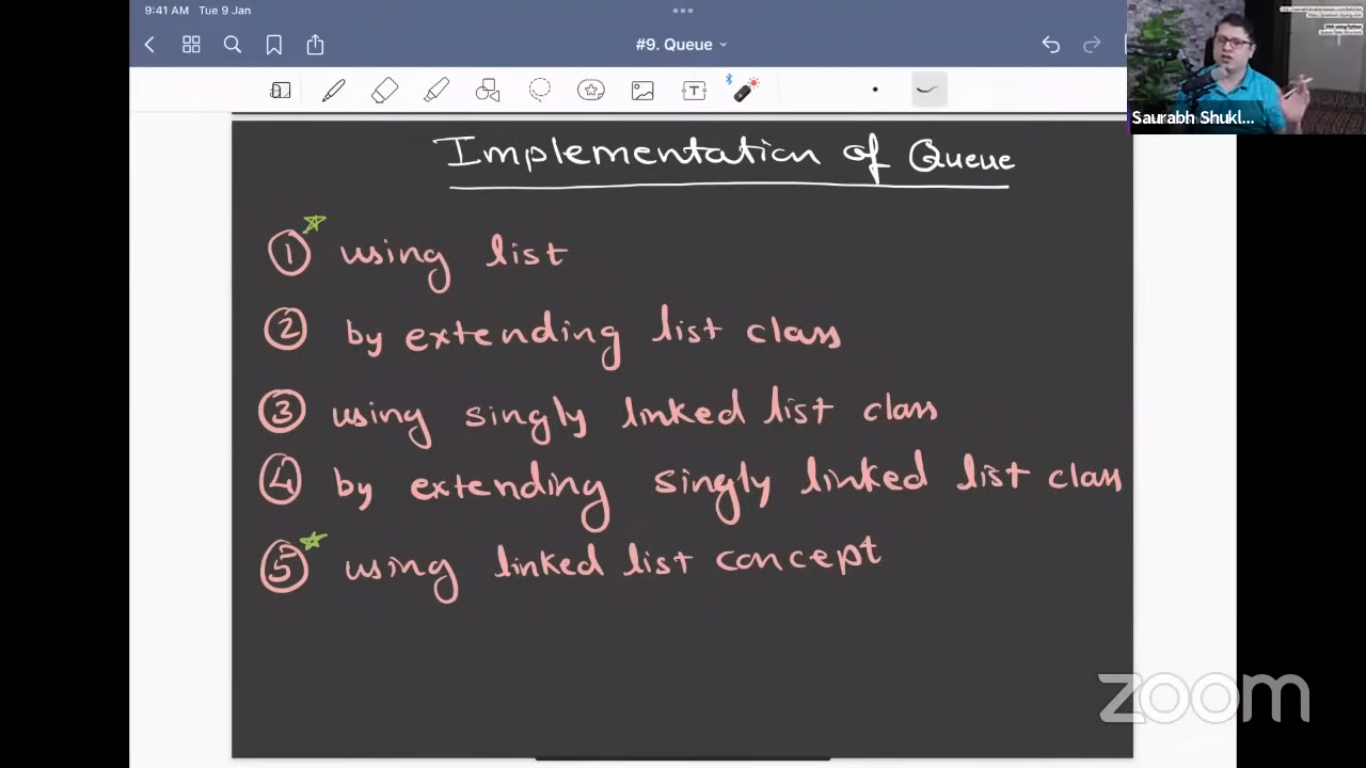 9:41 AM Tue 9 Jan
#9. Queue
Saurabh Shukl...
Implementation of Queue
① using list
② by extending list class
③ using singly linked list class
④ by extending singly linked list class
⑤ using linked list concept
zoom